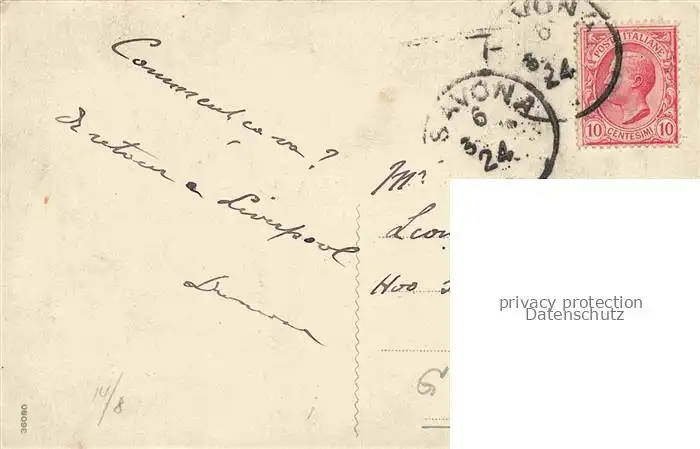 Comment ça va?
De retour a Liverpool
SAVONA
6
3 24
T
SAVONA
6
3 24
POSTE ITALIANE
10 CENTESIMI 10
Mr
Leon
Hoo
privacy protection
Datenschutz
14/8
36080